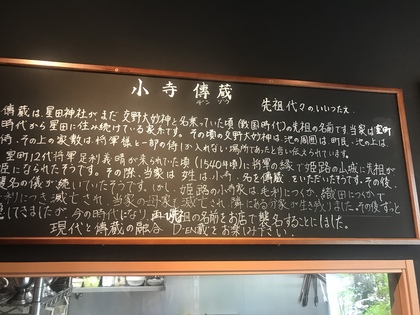 小寺傳蔵
デンゾウ
先祖代々のいいつたえ
傳蔵は、星田神社がまだ交野大妙神と名乗っていた頃(戦国時代)の先祖の名前です。当家は室町
時代から星田に住み続けている家系です。その頃の交野大妙神は、池の周囲は町民、池の上は
侍、その上の家敷は将軍様と一部の侍しか入れない場所であったと言い伝えられています。
室町12代将軍足利義晴が来られていた頃(1540年頃)に将軍の縁で姫路の山城に先祖が
臣になられたそうです。その際、当家は姓は小寺、名を傳蔵をいただいたそうです。その後、
襲名の儀が続いていたそうです。しかし姫路の小寺家は毛利につくか、織田につくかで
毛利につき滅亡され、当家の母家も滅亡され、隣にある分家が生き残りました。その後ずっと
していましたが、今の時代になり、再び先祖の名前をお店で襲名することにしました。
現代と傳蔵の融合 D-EN蔵をお楽しみ下さい。